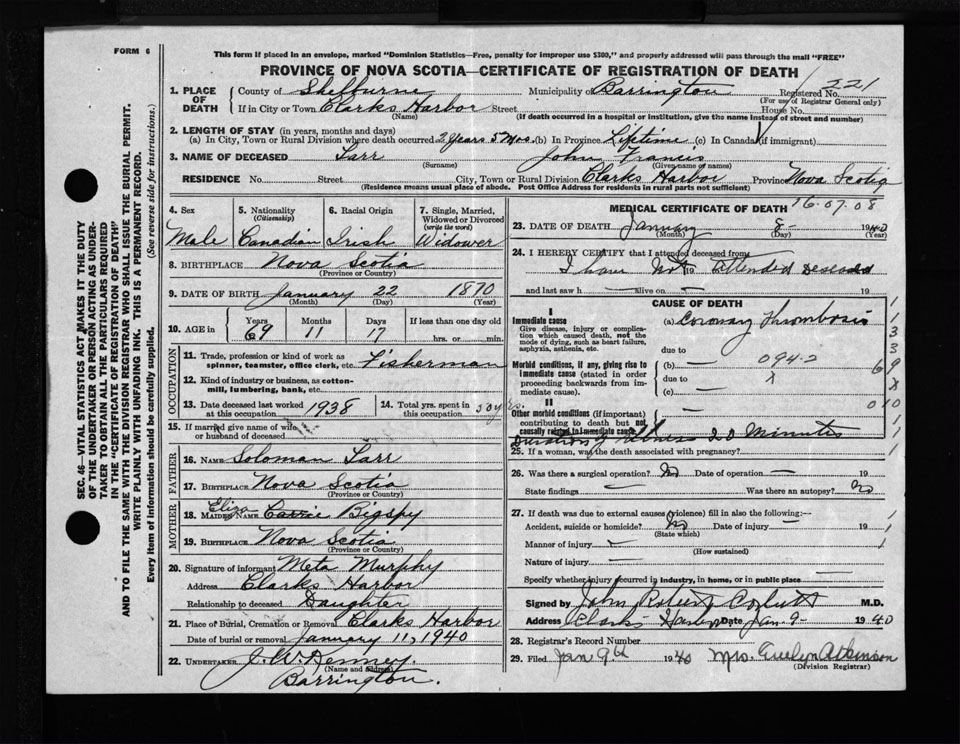 FORM 6
This form if placed in an envelope, marked "Dominion Statistics—Free, penalty for improper use $300," and properly addressed will pass through the mail "FREE"
PROVINCE OF NOVA SCOTIA—CERTIFICATE OF REGISTRATION OF DEATH
221
1. PLACE OF DEATH County of Shelburne Municipality of Barrington Registered No.
(For use of Registrar General only)
If in City or Town Clarks Harbor Street House No.
(Name) (If death occurred in a hospital or institution, give the name instead of street and number)
2. LENGTH OF STAY (in years, months and days)
(a) In City, Town or Rural Division where death occurred 2 years 5 mos. (b) In Province Lifetime (c) In Canada (if immigrant)
3. NAME OF DECEASED Sarr John Francis
(Surname) (Given name or names)
RESIDENCE No. Street City, Town or Rural Division Clarks Harbor Province Nova Scotia
(Residence means usual place of abode. Post Office Address for residents in rural parts not sufficient)
16-07-08
4. Sex 5. Nationality (Citizenship) 6. Racial Origin 7. Single, Married, Widowed or Divorced (write the word)
Male Canadian Irish Widower
8. BIRTHPLACE Nova Scotia
(Province or Country)
9. DATE OF BIRTH January 22 1870
(Month) (Day) (Year)
10. AGE in Years Months Days If less than one day old
69 11 17 hrs. or min.
OCCUPATION
11. Trade, profession or kind of work as spinner, teamster, office clerk, etc. Fisherman
12. Kind of industry or business, as cotton-mill, lumbering, bank, etc.
13. Date deceased last worked at this occupation 1938 14. Total yrs. spent in this occupation 50 yrs.
15. If married give name of wife or husband of deceased
FATHER
16. NAME Soloman Sarr
17. BIRTHPLACE Nova Scotia
(Province or Country)
MOTHER
Eliza
18. MAIDEN NAME Carrie Bigspy
19. BIRTHPLACE Nova Scotia
(Province or Country)
20. Signature of informant Meta Murphy
Address Clarks Harbor
Relationship to deceased Daughter
21. Place of Burial, Cremation or Removal Clarks Harbor
Date of burial or removal January 11, 1940
22. UNDERTAKER J. W. Kenney
(Name and address)
Barrington.
MEDICAL CERTIFICATE OF DEATH
23. DATE OF DEATH January 8 - 1940
(Month) (Day) (Year)
24. I HEREBY CERTIFY that I attended deceased from
I have Not 19 attended Deseased
and last saw h alive on 19
CAUSE OF DEATH
I
Immediate cause (a) Coronay Thrombosis
Give disease, injury or complication which caused death, not the mode of dying, such as heart failure, asphyxia, asthenia, etc.
due to
Morbid conditions, if any, giving rise to immediate cause (stated in order proceeding backwards from immediate cause).
(b) 094-2
due to
(c)
II
Other morbid conditions (if important) contributing to death but not causally related to immediate cause.
Duration of illness 20 Minutes
25. If a woman, was the death associated with pregnancy?
26. Was there a surgical operation? No Date of operation
State findings Was there an autopsy? No
27. If death was due to external causes (violence) fill in also the following:-
Accident, suicide or homicide? No Date of injury 19
(State which)
Manner of injury
(How sustained)
Nature of injury
Specify whether injury occurred in industry, in home, or in public place
Signed by John Robert Corbett M.D.
Address Clarks Harbor Date Jan-9- 1940
28. Registrar's Record Number
29. Filed Jan 9th 1940 Mrs. Evelyn Atkinson
(Division Registrar)
SEC. 46—VITAL STATISTICS ACT MAKES IT THE DUTY
OF THE UNDERTAKER OR PERSON ACTING AS UNDER-
TAKER TO OBTAIN ALL THE PARTICULARS REQUIRED
IN THE "CERTIFICATE OF REGISTRATION OF DEATH"
AND TO FILE THE SAME WITH THE DIVISION REGISTRAR WHO SHALL ISSUE THE BURIAL PERMIT.
WRITE PLAINLY WITH UNFADING INK. THIS IS A PERMANENT RECORD.
Every item of information should be carefully supplied. (See reverse side for instructions.)